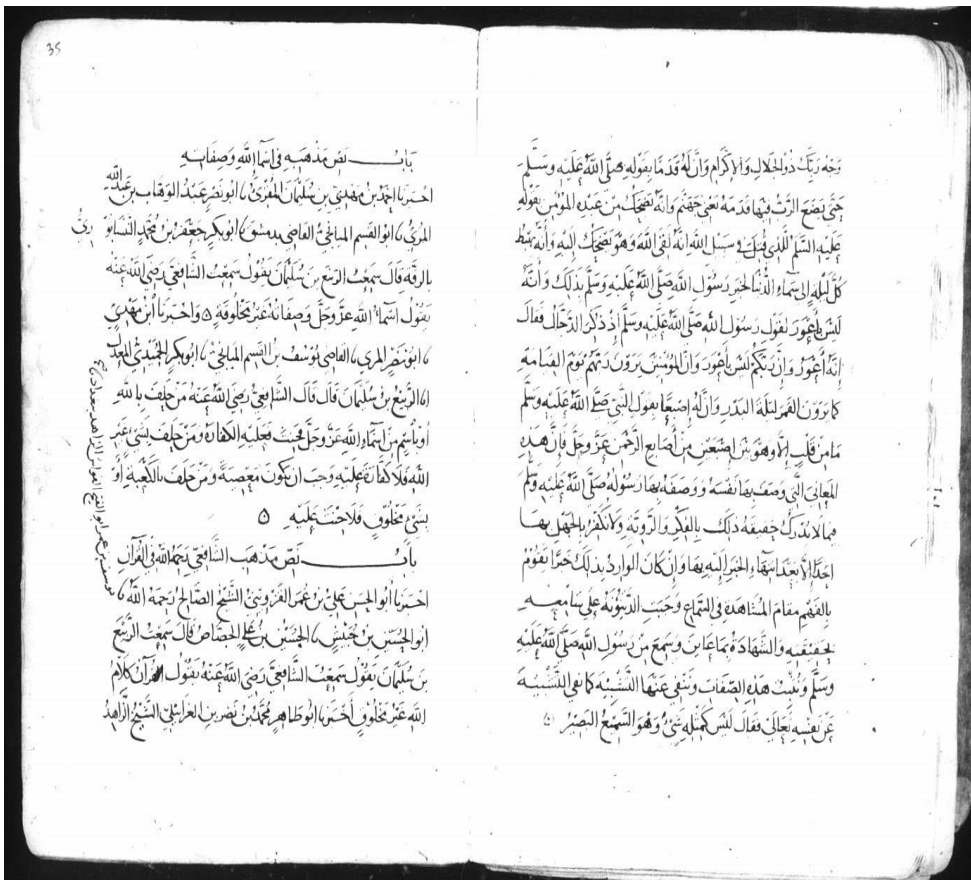 وجه ربك ذو الجلال والاكرام وان له قدما بقوله صلى الله عليه وسلم
حتى يضع الرب فيها قدمه يعني جهنم وانه يضحك من عبده المؤمن بقوله
عليه السلم للذي قتل في سبيل الله انه لقي الله وهو يضحك اليه وانه يهبط
كل ليلة الى سماء الدنيا لخبر رسول الله صلى الله عليه وسلم بذلك وانه
ليس بأعور لقول رسول الله صلى الله عليه وسلم إذ ذكر الدجال فقال
إنه أعور وإن ربكم ليس بأعور وان المؤمنين يرون ربهم يوم القيامة
كما يرون القمر ليلة البدر وان له إصبعا بقول النبي صلى الله عليه وسلم
ما من قلب إلا وهو بين اصبعين من أصابع الرحمن عز وجل فإن هذه
المعاني التي وصف بها نفسه ووصفه بها رسوله صلى الله عليه وسلم
مما لا يدرك حقيقة ذلك بالفكر والروية ولا نكفر بالجهل بها
احدا إلا بعد انتهاء الخبر إليه بها وإن كان الوارد بذلك خبرا يقوم
بالفهم مقام المشاهدة في السماع وجبت الدينونة على سامعه
بحقيقته والشهادة بما عاين وسمع من رسول الله صلى الله عليه
وسلم ونثبت هذه الصفات وننفي عنها التشبيه كما نفى التشبيه
عن نفسه تعالى فقال ليس كمثله شيء وهو السميع البصير
35
باب نص مذهبه في اسما الله وصفاته
اخبرنا احمد بن مهدي بن سليمان المقرئ ابو نصر عبد الوهاب بن عبد الله
المري ابو القسم الميانجي القاضي بدمشق ابو بكر جعفر بن محمد النيسابوري
بالرقة قال سمعت الربيع بن سليمان يقول سمعت الشافعي رضي الله عنه
يقول اسماء الله عز وجل وصفاته غير مخلوقة ٥ واخبرنا ابن مهدي
ابو نصر المري القاضي يوسف بن القسم الميانجي ابو بكر الحميدي المعدل
انا الربيع بن سليمان قال قال الشافعي رضي الله عنه من حلف بالله
أو باسم من أسماء الله عز وجل فحنث فعليه الكفارة ومن حلف بشيء غير
الله فلا كفارة عليه وحسب ان يكون معصية ومن حلف بالكعبة أو
بشيء مخلوق فلا حنث عليه ٥
باب نص مذهب الشافعي رحمه الله في القرآن
اخبرنا ابو الحسن علي بن عمر القزويني الشيخ الصالح رحمه الله
ابو الحسين بن حبيش الحسين بن علي الجصاص قال سمعت الربيع
بن سليمان يقول سمعت الشافعي رضي الله عنه يقول القرآن كلام
الله غير مخلوق أخبرنا ابو طاهر محمد بن نصر بن الشيخ الزاهد
يوسف بن عمر ابو الفتح القواس الزاهد ببغداد